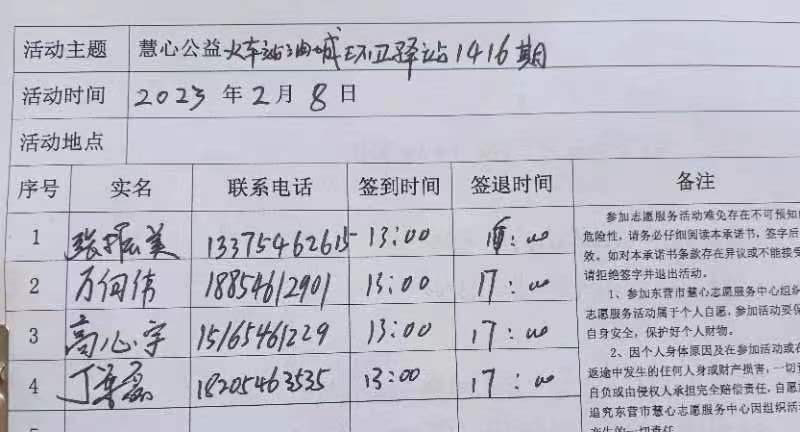 活动主题 慧心公益火车站油城环卫驿站1416期
活动时间 2023年2月8日
活动地点
序号 实名 联系电话 签到时间 签退时间 备注
1 张振美 13375462615 13:00 :00
2 万何伟 18854612901 13:00 17:00
3 高心宇 15165461229 13:00 17:00
4 丁 18205463535 13:00 17:00
参加志愿服务活动难免存在不可预知的
危险性，请务必仔细阅读本承诺书，签字后
效。如对本承诺书条款存在异议或不能接受
请拒绝签字并退出活动。
1、参加东营市慧心志愿服务中心组织
志愿服务活动属于个人自愿，参加活动要保
自身安全，保护好个人财物。
2、因个人身体原因及在参加活动或在
返途中发生的任何人身或财产损害，一切
自负或由侵权人承担完全赔偿责任，自愿
追究东营市慧心志愿服务中心因组织活
产生的一切责任